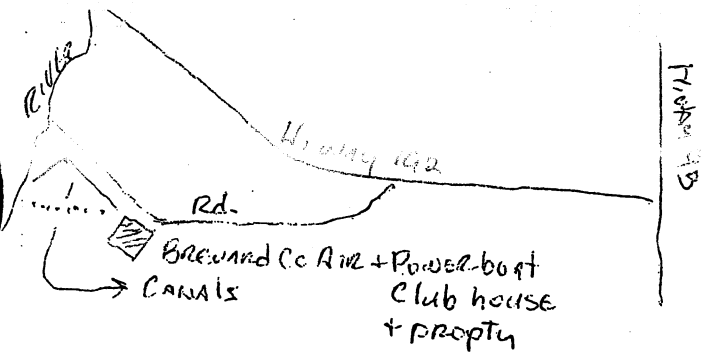 River
Hiway 192
Rd.
BREVARD Co AIR + POWER-boat
Club house
+ propty
CANAls